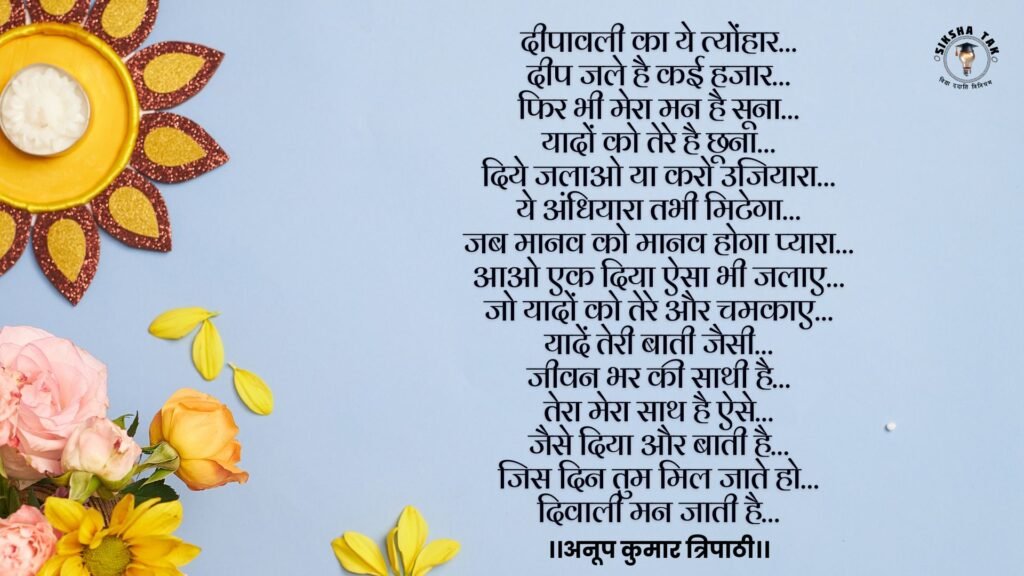 दीपावली का ये त्योंहार...
दीप जले है कई हजार...
फिर भी मेरा मन है सूना...
यादों को तेरे है छूना...
दिये जलाओ या करो उजियारा...
ये अंधियारा तभी मिटेगा...
जब मानव को मानव होगा प्यारा...
आओ एक दिया ऐसा भी जलाए...
जो यादों को तेरे और चमकाए...
यादें तेरी बाती जैसी...
जीवन भर की साथी है...
तेरा मेरा साथ है ऐसे...
जैसे दिया और बाती है...
जिस दिन तुम मिल जाते हो...
दिवाली मन जाती है...
।।अनूप कुमार त्रिपाठी।।
SIKSHA TAK
विद्या ददाति विनियम